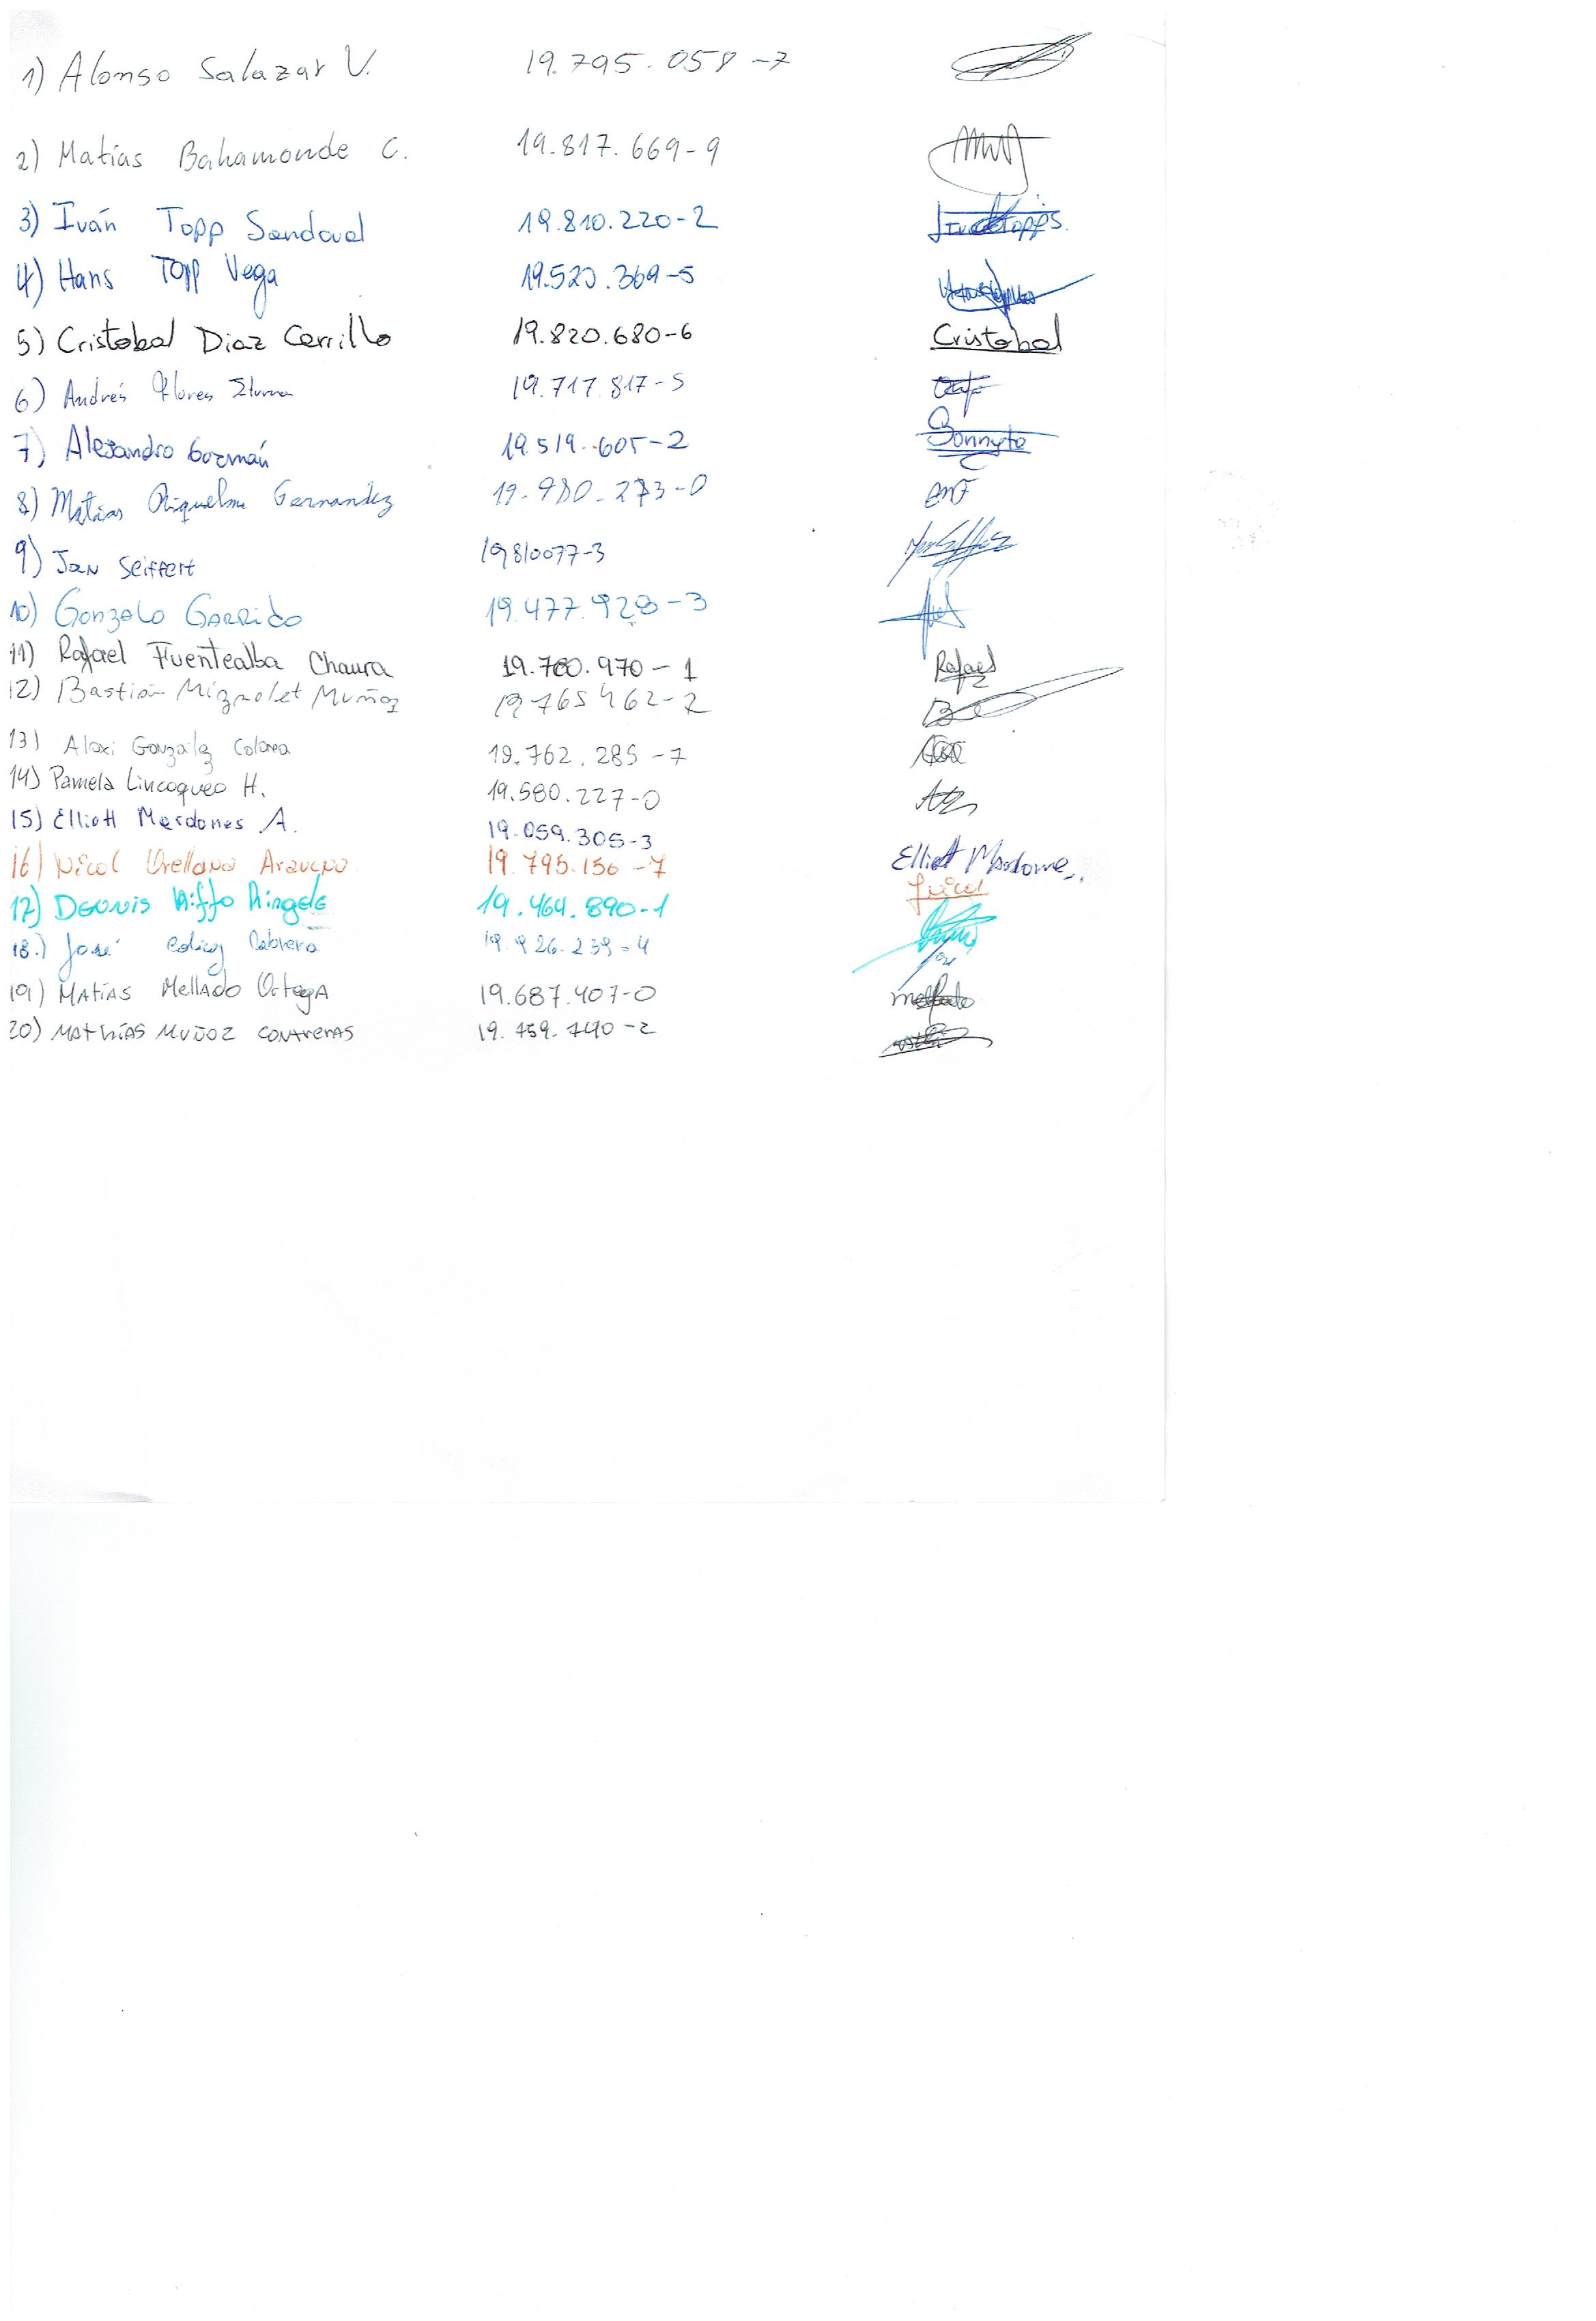 1) Alonso Salazar V. 19.795.058-7
2) Matías Bahamonde C. 19.817.669-9
3) Iván Topp Sandoval 19.810.220-2
4) Hans Topp Vega 19.520.369-5
5) Cristobal Diaz Carrillo 19.820.680-6 Cristobal
6) Andrés Flores 19.717.817-5
7) Alejandro Guzmán 19.519.605-2
8) Matías Riquelme Fernandez 19.980.273-0
9) Jan Seiffert 19810077-3
10) Gonzalo Garrido 19.477.928-3
11) Rafael Fuentealba Chaura 19.760.970-1 Rafael
12) Bastián Mignolet Muñoz 19765462-2
13) Alexi González 19.762.285-7
14) Pamela Lincoqueo H. 19.580.227-0
15) Elliott Mardones A. 19.059.305-3
Elliott Mardones
16) Nicol Orellana Araveno 19.795.156-7 Nicol
17) Dennis 19.464.890-1
18.) José Cabrera 19.926.239-4
19) Matías Mellado Ortega 19.687.407-0 mellado
20) Mathías Muñoz Contreras 19.759.740-2